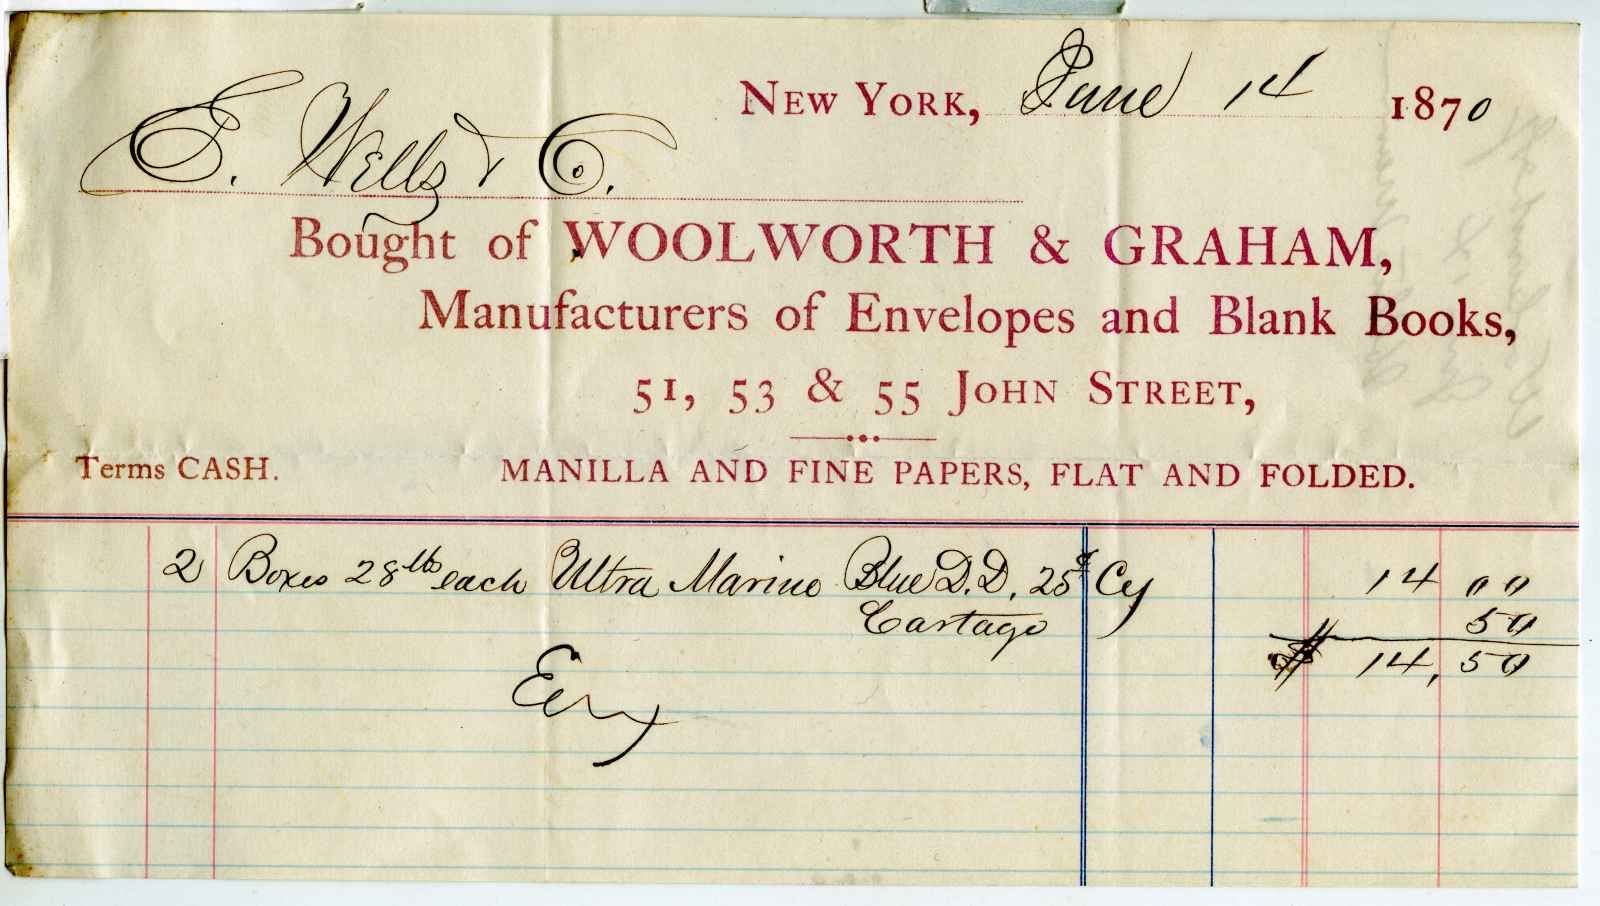 NEW YORK, June 14 1870
E. Wells & Co.
Bought of WOOLWORTH & GRAHAM,
Manufacturers of Envelopes and Blank Books,
51, 53 & 55 JOHN STREET,
Terms CASH. MANILLA AND FINE PAPERS, FLAT AND FOLDED.
2 Boxes 28 lbs each Ultra Marine Blue D.D. 25¢ Cy 14 00
Cartage 50
$ 14,50